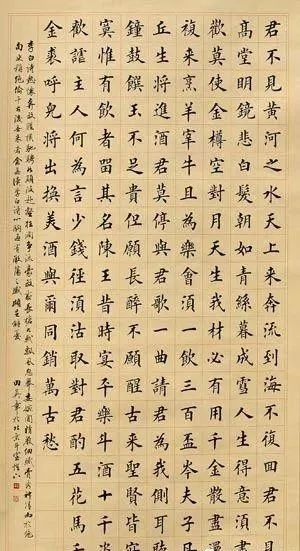 君不見黃河之水天上來奔流到海不復回君不見
高堂明鏡悲白髮朝如青絲暮成雪人生得意須盡
歡莫使金樽空對月天生我材必有用千金散盡還
復來烹羊宰牛且為樂會須一飲三百盃岑夫子丹
丘生將進酒君莫停與君歌一曲請君為我側耳聽
鐘鼓饌玉不足貴但願長醉不願醒古來聖賢皆寂
寞惟有飲者留其名陳王昔時宴平樂斗酒十千恣
歡謔主人何為言少錢徑須沽取對君酌五花馬千
金裘呼兒將出換美酒與爾同銷萬古愁
李白詩
田英章於北京